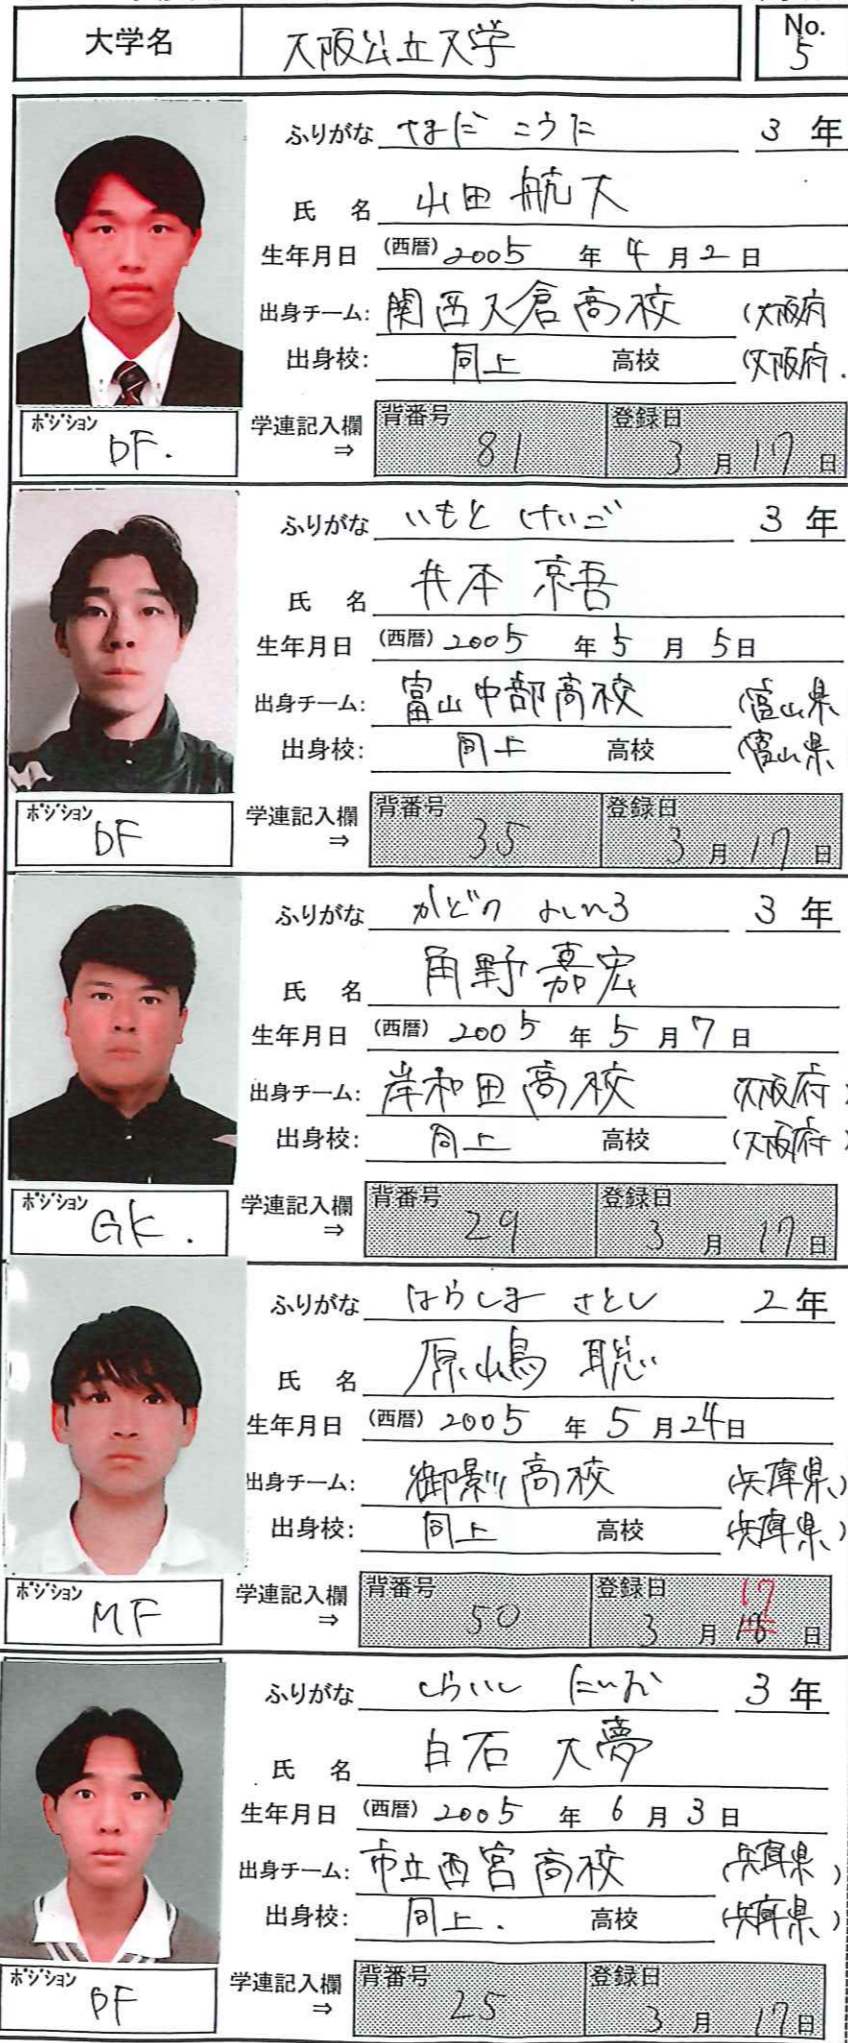 大学名 大阪公立大学 No. 5
ふりがな やまだ こうた 3年
氏名 山田航大
生年月日 (西暦) 2005 年 4 月 2 日
出身チーム: 関西大倉高校 (大阪府
出身校: 同上 高校 (大阪府
ポジション DF. 学連記入欄⇒ 背番号 81 登録日 3 月 17 日
ふりがな いもと けいご 3年
氏名 井本 京吾
生年月日 (西暦) 2005 年 5 月 5日
出身チーム: 富山中部高校 (富山県
出身校: 同上 高校 (富山県
ポジション DF 学連記入欄⇒ 背番号 35 登録日 3 月 17 日
ふりがな かどの よしひろ 3年
氏名 角野嘉宏
生年月日 (西暦) 2005 年 5 月 7 日
出身チーム: 岸和田高校 (大阪府)
出身校: 同上 高校 (大阪府)
ポジション GK. 学連記入欄⇒ 背番号 29 登録日 3 月 17 日
ふりがな はらしま さとし 2年
氏名 原嶋 聡
生年月日 (西暦) 2005 年 5 月 24日
出身チーム: 御影高校 (兵庫県)
出身校: 同上 高校 (兵庫県)
ポジション MF 学連記入欄⇒ 背番号 50 登録日 3 月 17 日
ふりがな しらいし 3年
氏名 白石 大夢
生年月日 (西暦) 2005 年 6 月 3 日
出身チーム: 市立西宮高校 (兵庫県)
出身校: 同上. 高校 (兵庫県)
ポジション DF 学連記入欄⇒ 背番号 25 登録日 3 月 17日